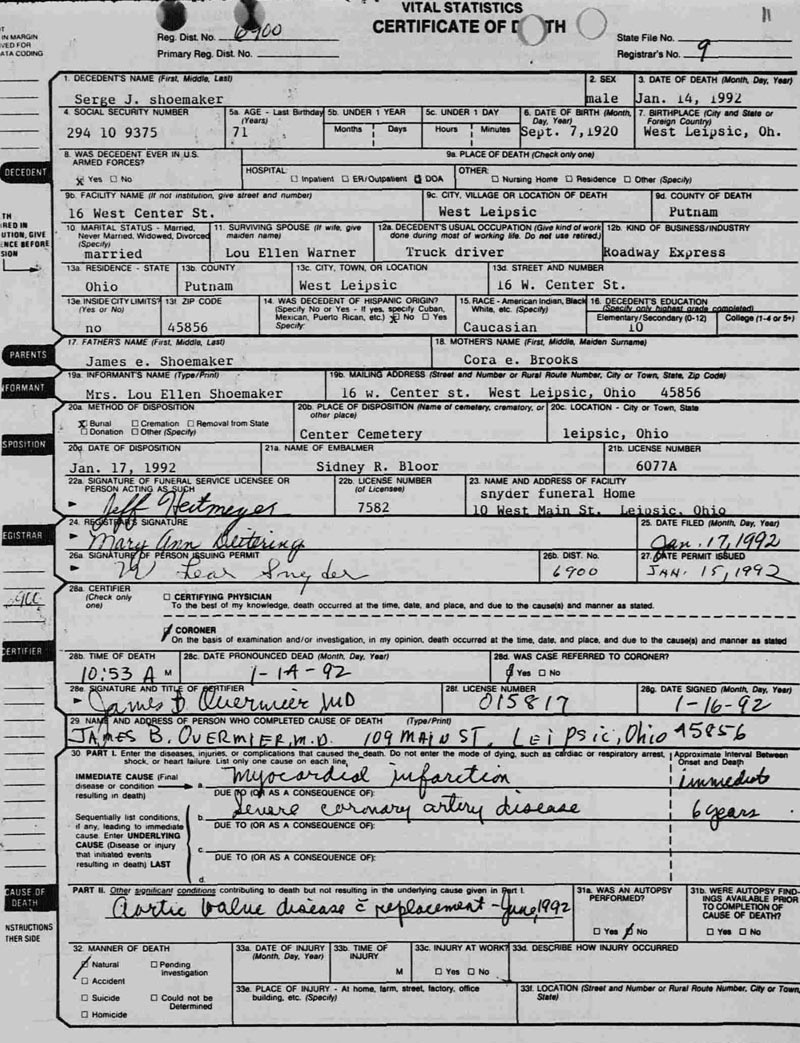 VITAL STATISTICS
CERTIFICATE OF D TH
IN MARGIN
VED FOR
ATA CODING
Reg. Dist. No. 6900
Primary Reg. Dist. No.
State File No.
Registrar's No. 9
1. DECEDENT'S NAME (First, Middle, Last)
Serge J. shoemaker
2. SEX
male
3. DATE OF DEATH (Month, Day, Year)
Jan. 14, 1992
4. SOCIAL SECURITY NUMBER
294 10 9375
5a. AGE - Last Birthday (Years)
71
5b. UNDER 1 YEAR
Months Days
5c. UNDER 1 DAY
Hours Minutes
6. DATE OF BIRTH (Month, Day, Year)
Sept. 7,1920
7. BIRTHPLACE (City and State or Foreign Country)
West Leipsic, Oh.
DECEDENT
8. WAS DECEDENT EVER IN U.S. ARMED FORCES?
x Yes No
9a. PLACE OF DEATH (Check only one)
HOSPITAL:
Inpatient ER/Outpatient DOA
OTHER:
Nursing Home Residence Other (Specify)
TH
RED IN
UTION, GIVE
NCE BEFORE
SION
9b. FACILITY NAME (If not institution, give street and number)
16 West Center St.
9c. CITY, VILLAGE OR LOCATION OF DEATH
West Leipsic
9d. COUNTY OF DEATH
Putnam
10. MARITAL STATUS - Married, Never Married, Widowed, Divorced (Specify)
married
11. SURVIVING SPOUSE (If wife, give maiden name)
Lou Ellen Warner
12a. DECEDENT'S USUAL OCCUPATION (Give kind of work done during most of working life. Do not use retired.)
Truck driver
12b. KIND OF BUSINESS/INDUSTRY
Roadway Express
13a. RESIDENCE - STATE
Ohio
13b. COUNTY
Putnam
13c. CITY, TOWN, OR LOCATION
West Leipsic
13d. STREET AND NUMBER
16 W. Center St.
13e. INSIDE CITY LIMITS? (Yes or No)
no
13f. ZIP CODE
45856
14. WAS DECEDENT OF HISPANIC ORIGIN?
(Specify No or Yes - If yes, specify Cuban, Mexican, Puerto Rican, etc.) x No Yes
Specify:
15. RACE - American Indian, Black White, etc. (Specify)
Caucasian
16. DECEDENT'S EDUCATION
(Specify only highest grade completed)
Elementary/Secondary (0-12) College (1-4 or 5+)
10
PARENTS
17. FATHER'S NAME (First, Middle, Last)
James e. Shoemaker
18. MOTHER'S NAME (First, Middle, Maiden Surname)
Cora e. Brooks
NFORMANT
19a. INFORMANT'S NAME (Type/Print)
Mrs. Lou Ellen Shoemaker
19b. MAILING ADDRESS (Street and Number or Rural Route Number, City or Town, State, Zip Code)
16 w. Center st. West Leipsic, Ohio 45856
SPOSITION
20a. METHOD OF DISPOSITION
x Burial Cremation Removal from State
Donation Other (Specify)
20b. PLACE OF DISPOSITION (Name of cemetery, crematory, or other place)
Center Cemetery
20c. LOCATION - City or Town, State
leipsic, Ohio
20d. DATE OF DISPOSITION
Jan. 17, 1992
21a. NAME OF EMBALMER
Sidney R. Bloor
21b. LICENSE NUMBER
6077A
22a. SIGNATURE OF FUNERAL SERVICE LICENSEE OR PERSON ACTING AS SUCH
Jeff Heitmeyer
22b. LICENSE NUMBER (of Licensee)
7582
23. NAME AND ADDRESS OF FACILITY
snyder funeral Home
10 West Main St. Leipsic, Ohio
EGISTRAR
24. REGISTRAR'S SIGNATURE
Mary Ann Deitering
25. DATE FILED (Month, Day, Year)
Jan. 17, 1992
26a. SIGNATURE OF PERSON ISSUING PERMIT
Snyder
26b. DIST. No.
6900
27. DATE PERMIT ISSUED
JAN. 15, 1992
28a. CERTIFIER
(Check only one)
CERTIFYING PHYSICIAN
To the best of my knowledge, death occurred at the time, date, and place, and due to the cause(s) and manner as stated.
CORONER
On the basis of examination and/or investigation, in my opinion, death occurred at the time, date, and place, and due to the cause(s) and manner as stated
CERTIFIER
28b. TIME OF DEATH
10:53 A M
28c. DATE PRONOUNCED DEAD (Month, Day, Year)
1-14-92
28d. WAS CASE REFERRED TO CORONER?
Yes No
28e. SIGNATURE AND TITLE OF CERTIFIER
James B Overmier MD
28f. LICENSE NUMBER
015817
28g. DATE SIGNED (Month, Day, Year)
1-16-92
29. NAME AND ADDRESS OF PERSON WHO COMPLETED CAUSE OF DEATH (Type/Print)
JAMES B. OVERMIER, M.D. 109 MAIN ST, LEIPSIC, Ohio 45856
30. PART I. Enter the diseases, injuries, or complications that caused the death. Do not enter the mode of dying, such as cardiac or respiratory arrest, shock, or heart failure. List only one cause on each line.
Approximate Interval Between Onset and Death
IMMEDIATE CAUSE (Final disease or condition resulting in death)
a. Myocardial infarction
immediate
DUE TO (OR AS A CONSEQUENCE OF):
Sequentially list conditions, if any, leading to immediate cause. Enter UNDERLYING CAUSE (Disease or injury that initiated events resulting in death) LAST
b. Severe coronary artery disease
6 years
DUE TO (OR AS A CONSEQUENCE OF):
c.
DUE TO (OR AS A CONSEQUENCE OF):
d.
CAUSE OF DEATH
NSTRUCTIONS
THER SIDE
PART II. Other significant conditions contributing to death but not resulting in the underlying cause given in Part I.
Aortic Valve disease c̄ replacement - June, 1992
31a. WAS AN AUTOPSY PERFORMED?
Yes No
31b. WERE AUTOPSY FINDINGS AVAILABLE PRIOR TO COMPLETION OF CAUSE OF DEATH?
Yes No
32. MANNER OF DEATH
Natural Pending Investigation
Accident
Suicide Could not be Determined
Homicide
33a. DATE OF INJURY (Month, Day, Year)
33b. TIME OF INJURY
M
33c. INJURY AT WORK?
Yes No
33d. DESCRIBE HOW INJURY OCCURRED
33e. PLACE OF INJURY - At home, farm, street, factory, office building, etc. (Specify)
33f. LOCATION (Street and Number or Rural Route Number, City or Town, State)